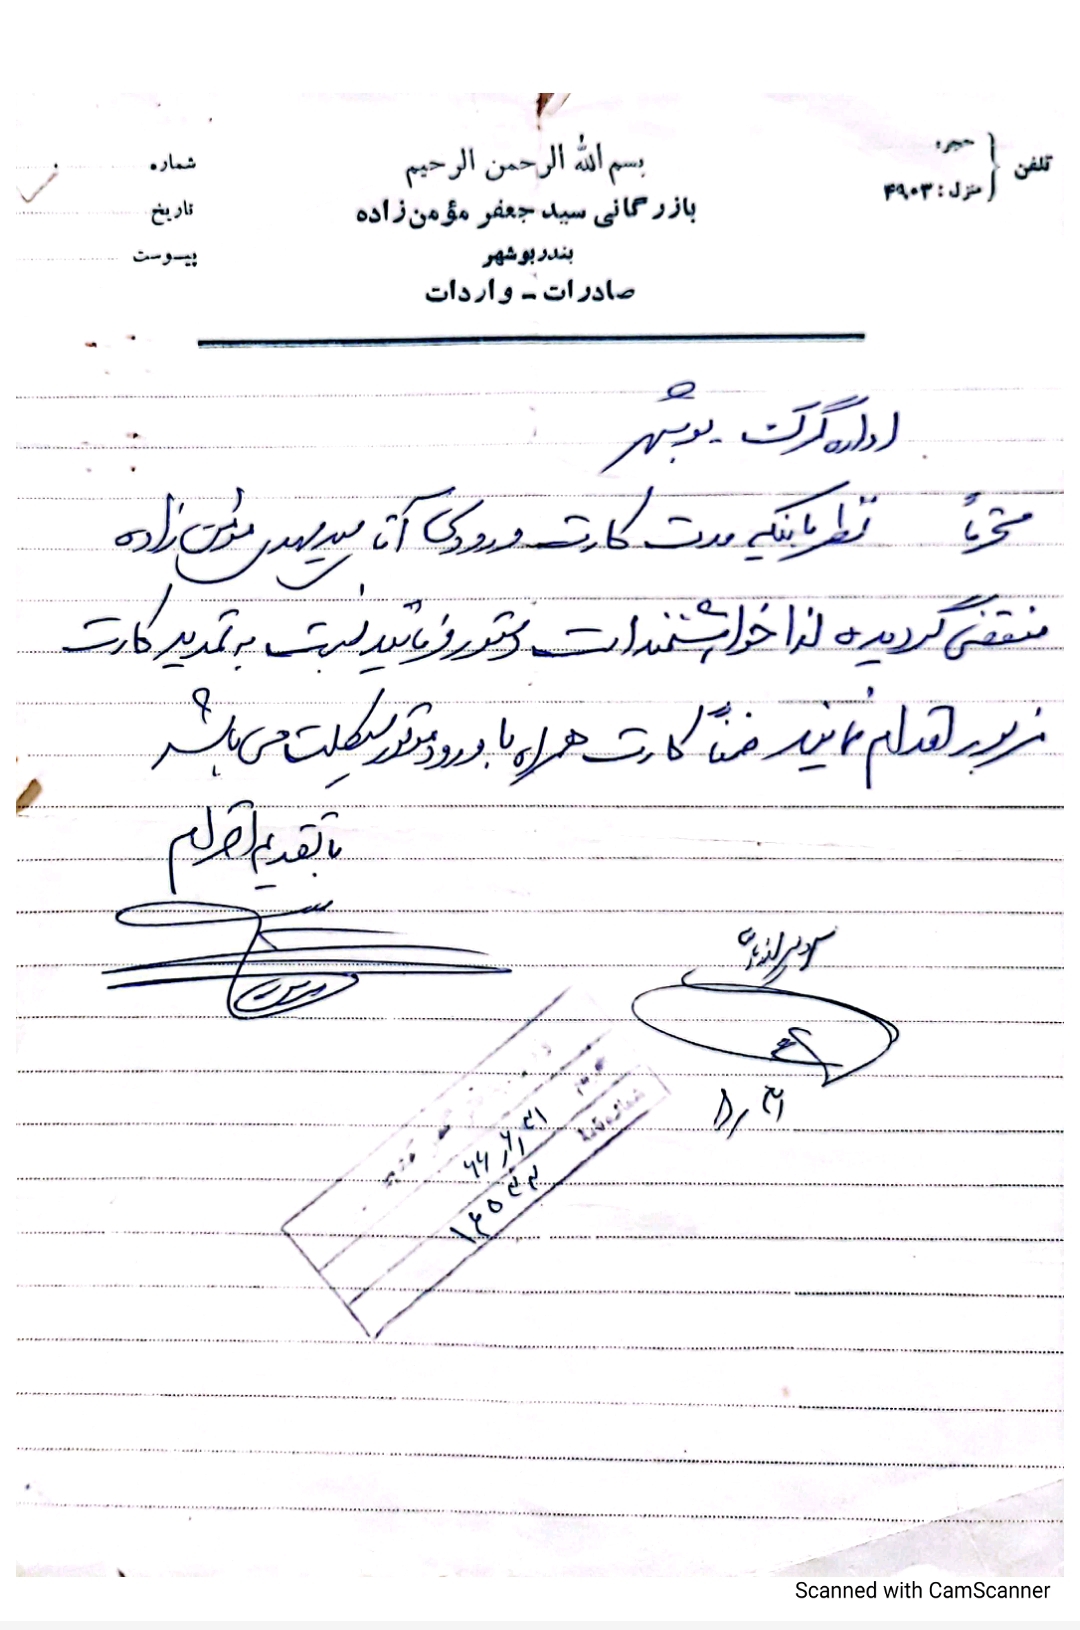 بسم الله الرحمن الرحیم
بازرگانی سید جعفر مؤمن‌زاده
بندر بوشهر
صادرات - واردات
تلفن
حجره:
منزل: ۴۹۰۳
شماره
تاریخ
پیوست
اداره گمرک بوشهر
محترماً نظر باینکه مدت کارت ورودی آقا سید مهدی مؤمن زاده
منقضی گردیده لذا خواهشمند است دستور فرمائید نسبت به تمدید کارت
مزبور اقدام نمایند ضمناً کارت همراه با ورود موتور سیکلت می باشد
با تقدیم احترام
شماره
Scanned with CamScanner